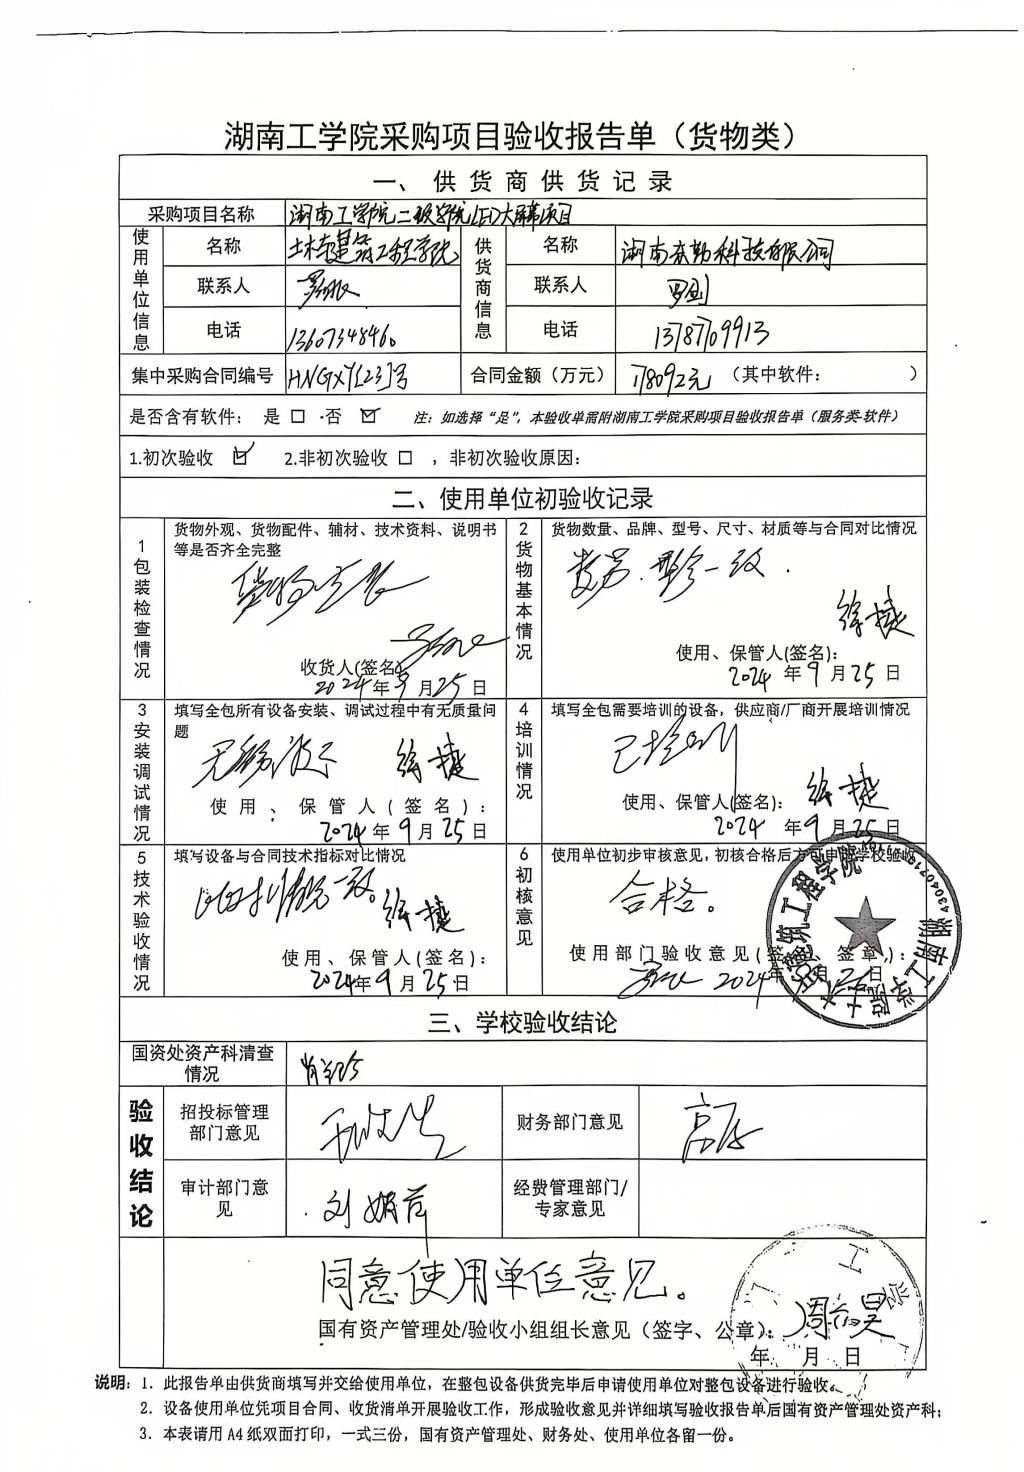 湖南工学院采购项目验收报告单（货物类）
一、供货商供货记录
采购项目名称 湖南工学院二级学院LED大屏幕项目
使用单位信息 名称 土木与建筑工程学院 供货商信息 名称 湖南 科技有限公司
联系人 联系人
电话 13607348460 电话 13787109913
集中采购合同编号 HNGXY[23]号 合同金额（万元） 178092元 （其中软件： ）
是否含有软件： 是 □ 否 ☑ 注：如选择“是”，本验收单需附湖南工学院采购项目验收报告单（服务类-软件）
1.初次验收 ☑ 2.非初次验收 □ ，非初次验收原因：
二、使用单位初验收记录
1包装检查情况
货物外观、货物配件、辅材、技术资料、说明书等是否齐全完整
货物完整
收货人(签名)：
2024年9月25日
2货物基本情况
货物数量、品牌、型号、尺寸、材质等与合同对比情况
数量、型号一致.
徐捷
使用、保管人(签名)：
2024年9月25日
3安装调试情况
填写全包所有设备安装、调试过程中有无质量问题
徐捷
使用、保管人（签名）：
2024年9月25日
4培训情况
填写全包需要培训的设备，供应商/厂商开展培训情况
已培训
使用、保管人(签名)： 徐捷
2024年9月25日
5技术验收情况
填写设备与合同技术指标对比情况
一致。 徐捷
使用、保管人(签名)：
2024年9月25日
6初核意见
使用单位初步审核意见，初核合格后方可申请学校验收
合格。
使用部门验收意见(签名、签章)：
2024年9月25日
湖南工学院土木与建筑工程学院
三、学校验收结论
国资处资产科清查情况
验收结论
招投标管理部门意见 财务部门意见
审计部门意见 刘 经费管理部门/专家意见
同意使用单位意见。
国有资产管理处/验收小组组长意见（签字、公章）： 周
年 月 日
说明：1．此报告单由供货商填写并交给使用单位，在整包设备供货完毕后申请使用单位对整包设备进行验收。
2．设备使用单位凭项目合同、收货清单开展验收工作，形成验收意见并详细填写验收报告单后国有资产管理处资产科；
3．本表请用A4纸双面打印，一式三份，国有资产管理处、财务处、使用单位各留一份。